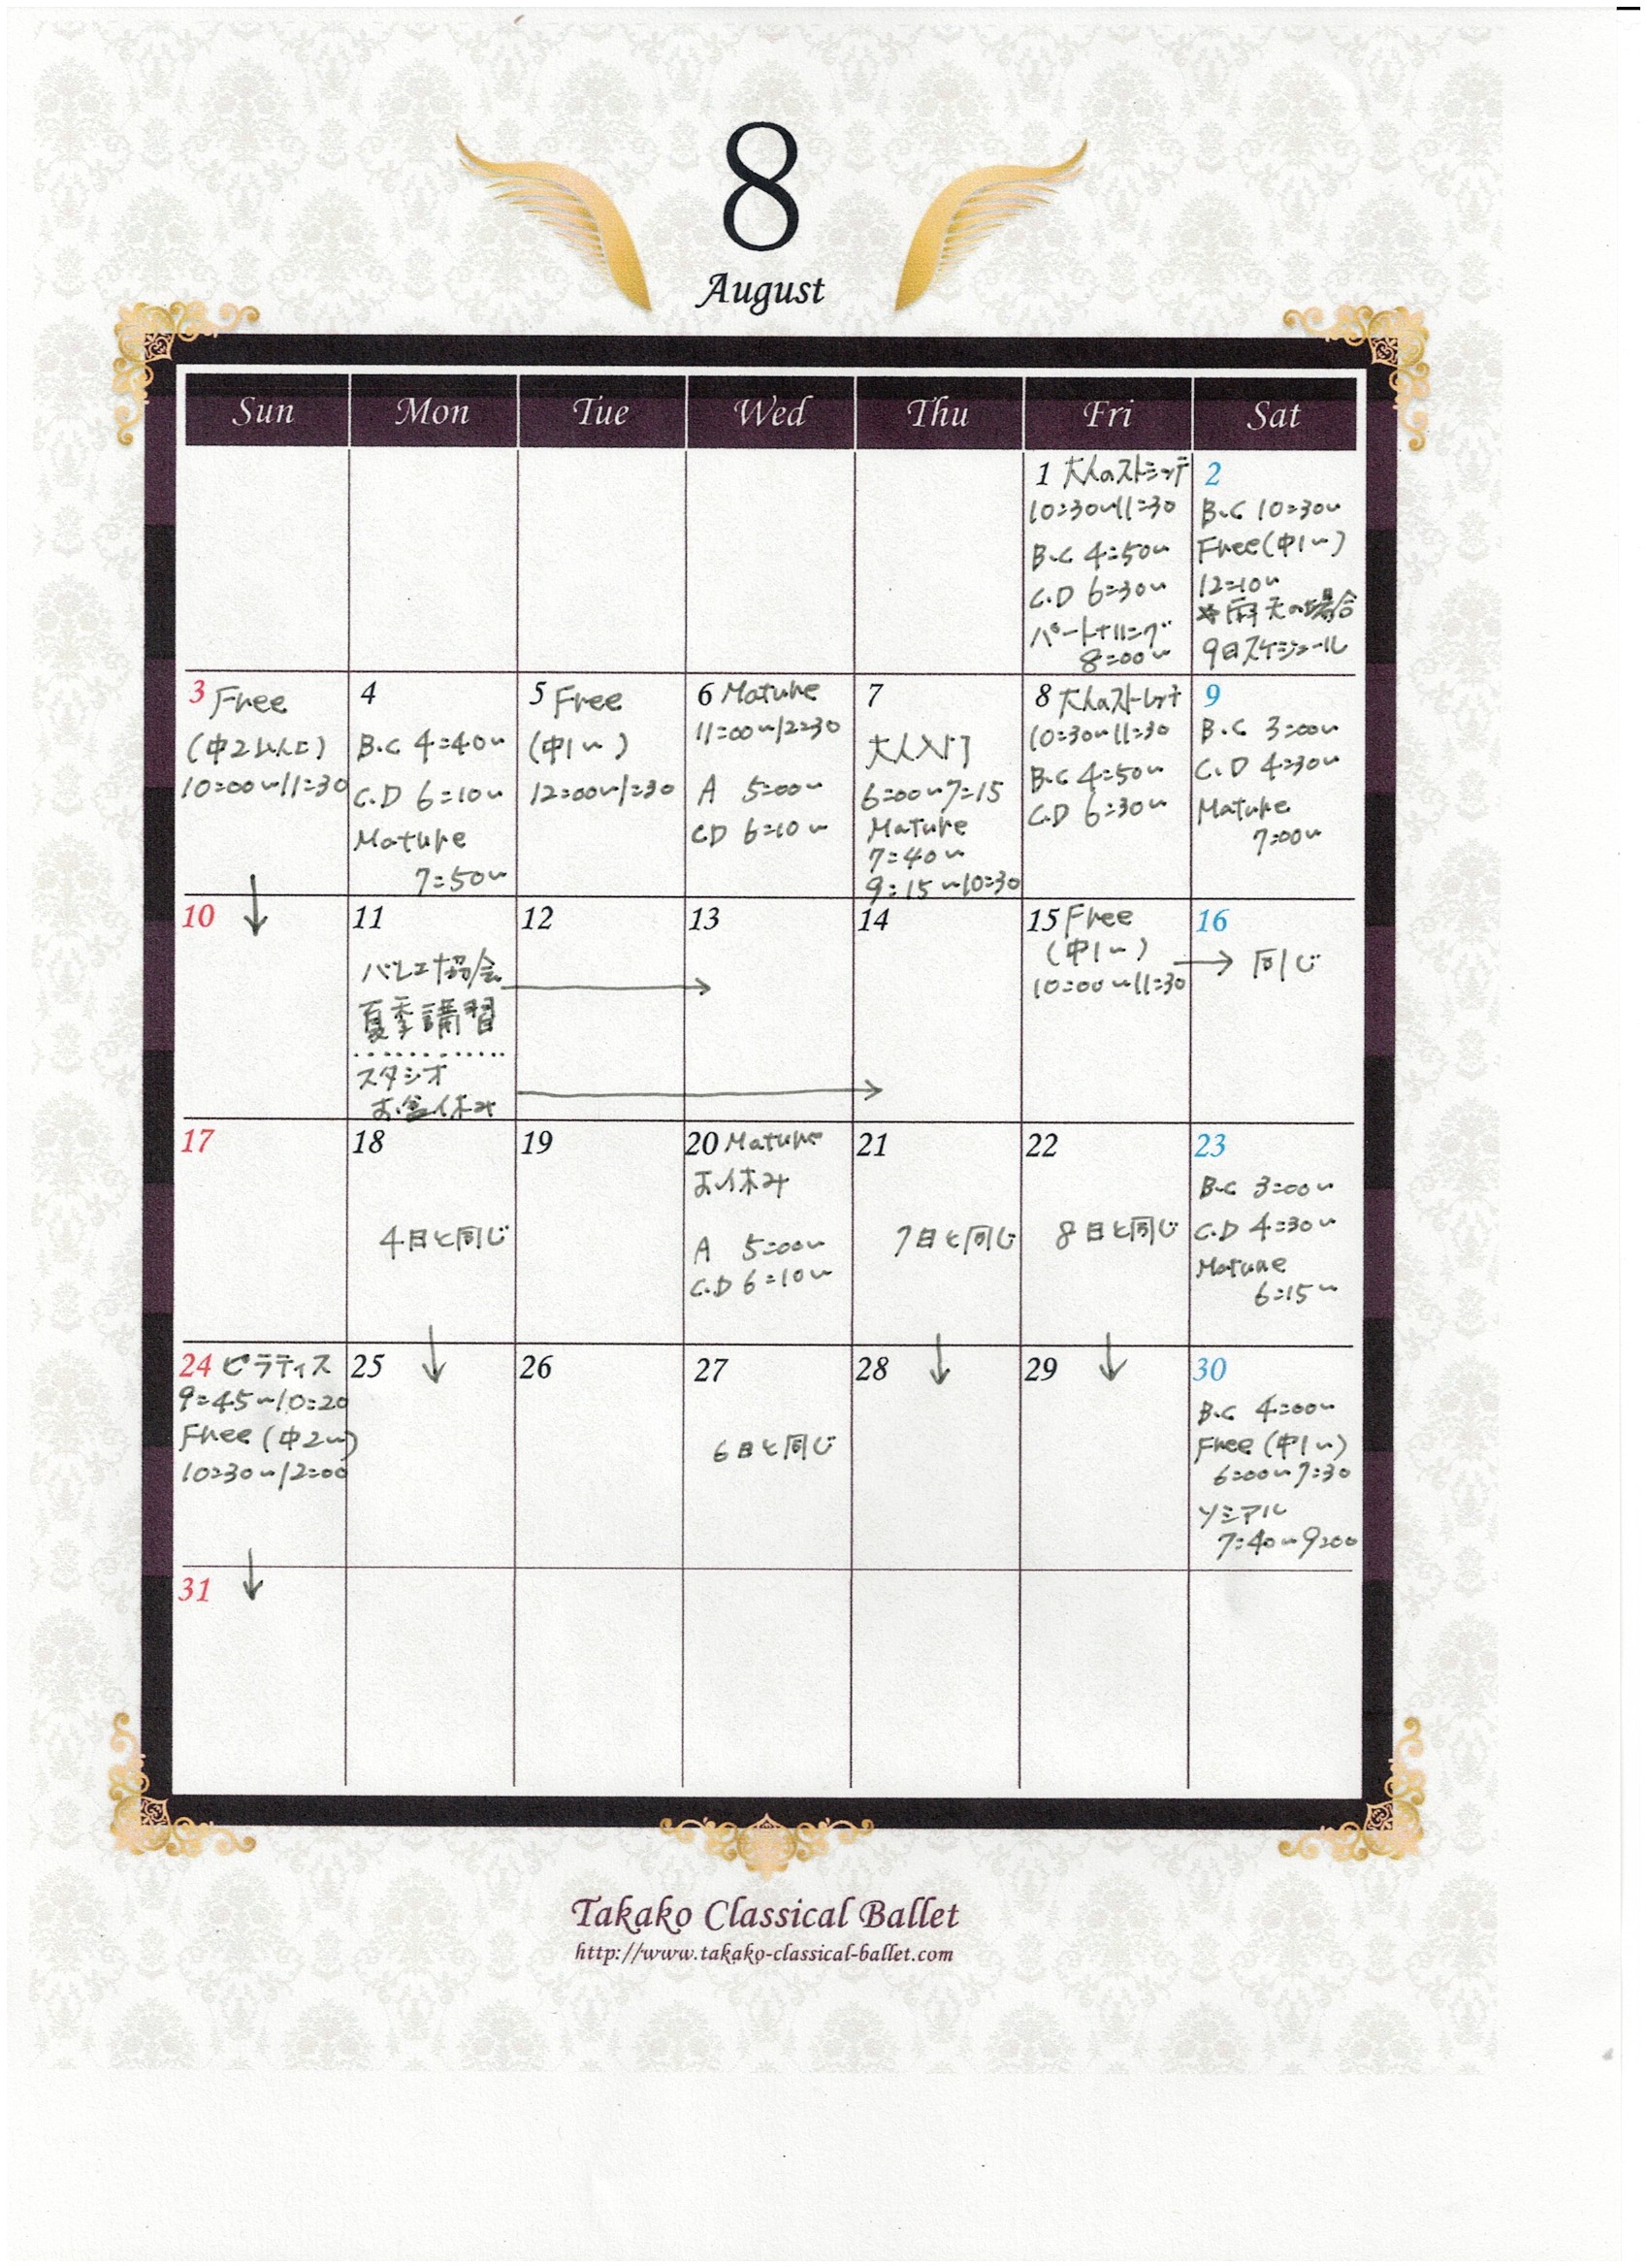 8
August
Sun Mon Tue Wed Thu Fri Sat
1 大人のストレッチ
10:30~11:30
B.C 4:50~
C.D 6:30~
パートナリング
8:00~
2
B.C 10:30~
Free(中1~)
12:10~
※雨天の場合
9日スケジュール
3 Free
(中2以上)
10:00~11:30
4
B.C 4:40~
C.D 6:10~
Mature
7:50~
5 Free
(中1~)
12:00~1:30
6 Mature
11:00~12:30
A 5:00~
CD 6:10~
7
大人入門
6:00~7:15
Mature
7:40~
9:15~10:30
8 大人のストレッチ
10:30~11:30
B.C 4:50~
C.D 6:30~
9
B.C 3:00~
C.D 4:30~
Mature
7:00~
10 ↓
11
バレエ協会
夏季講習
スタジオ
お盆休み
12
13
14
15 Free
(中1~)
10:00~11:30
16
→ 同じ
17
18
4日と同じ
19
20 Mature
お休み
A 5:00~
C.D 6:10~
21
7日と同じ
22
8日と同じ
23
B.C 3:00~
C.D 4:30~
Mature
6:15~
24 ピラティス
9:45~10:20
Free (中2~)
10:30~12:00
25 ↓
26
27
6日と同じ
28 ↓
29 ↓
30
B.C 4:00~
Free (中1~)
6:00~7:30
ソシアル
7:40~9:00
31 ↓
Takako Classical Ballet
http://www.takako-classical-ballet.com